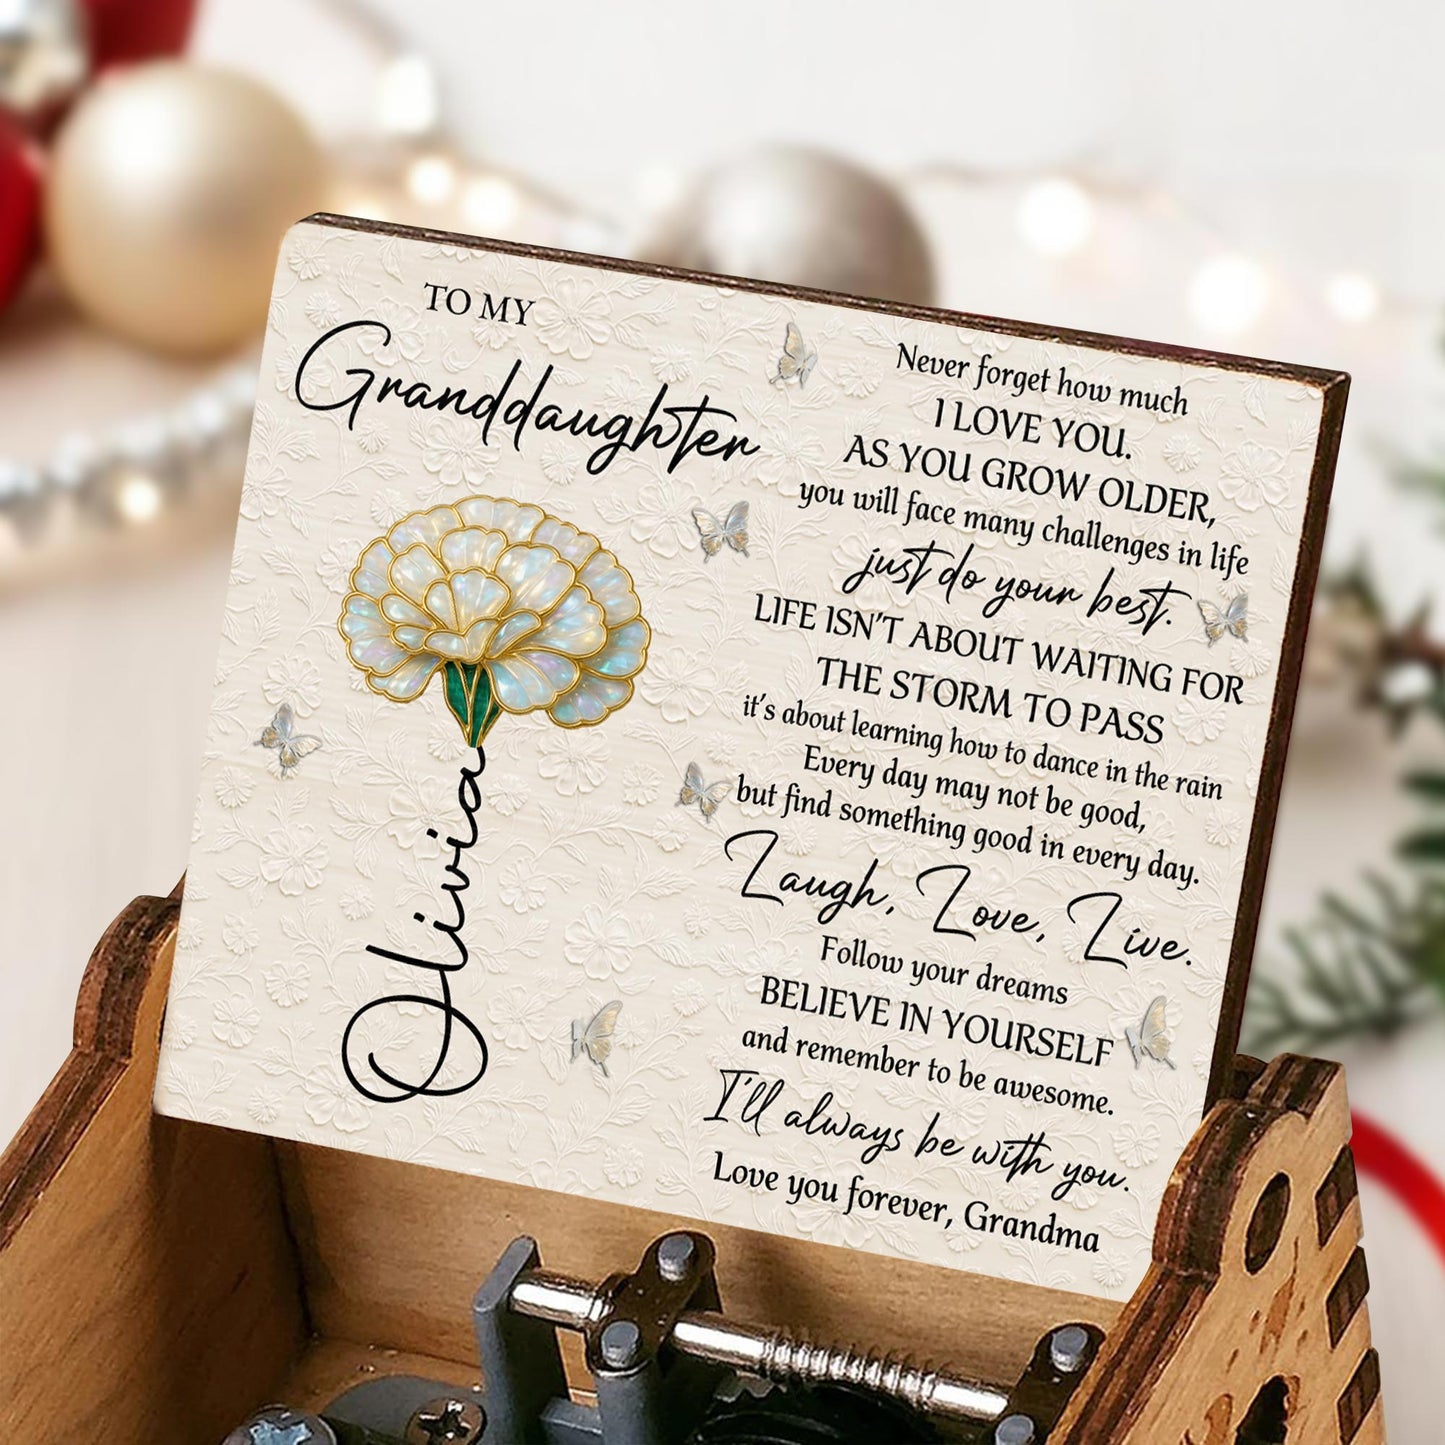 TO MY
Granddaughter
Olivia
Never forget how much
I LOVE YOU.
AS YOU GROW OLDER,
you will face many challenges in life
just do your best.
LIFE ISN'T ABOUT WAITING FOR
THE STORM TO PASS
it's about learning how to dance in the rain
Every day may not be good,
but find something good in every day.
Laugh, Love, Live.
Follow your dreams
BELIEVE IN YOURSELF
and remember to be awesome.
I'll always be with you.
Love you forever, Grandma